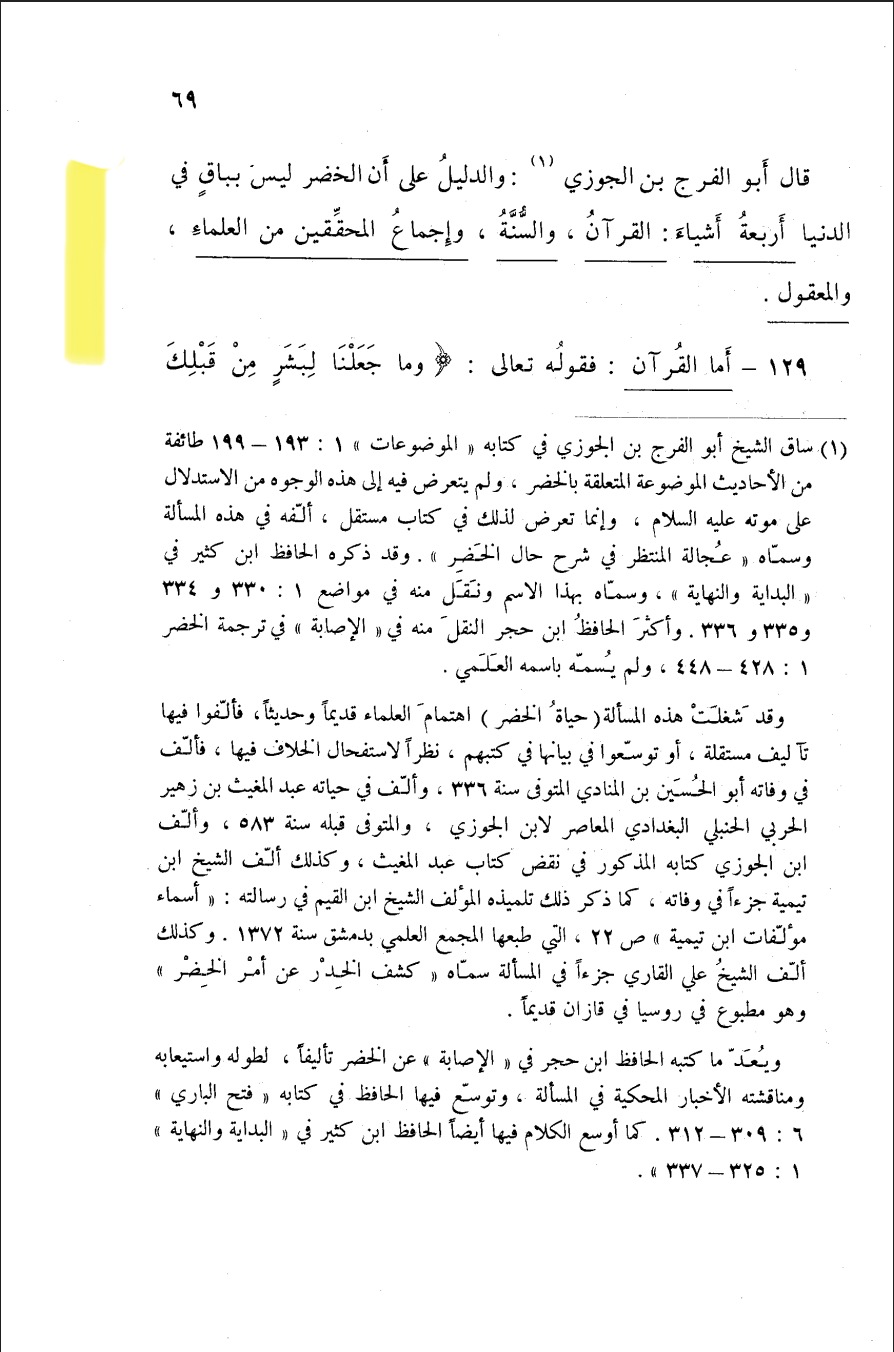 ٦٩
قال أَبو الفرج بن الجوزي (١) : والدليلُ على أَن الخضر ليسَ بباقٍ في
الدنيا أَربعةُ أَشياءَ : القرآنُ ، والسُّنَّةُ ، وإِجماعُ المحقِّقين من العلماءِ ،
والمعقول .
١٢٩ – أَما القُرآن : فقولُه تعالى : ﴿ وما جَعَلْنَا لِبَشَرٍ مِنْ قَبْلِكَ
(١) ساق الشيخ أبو الفرج بن الجوزي في كتابه « الموضوعات » ١ : ١٩٣ – ١٩٩ طائفة
من الأحاديث الموضوعة المتعلقة بالخضر ، ولم يتعرض فيه إلى هذه الوجوه من الاستدلال
على موته عليه السلام ، وإنما تعرض لذلك في كتاب مستقل ، ألّفه في هذه المسألة
وسمّاه « عُجالة المنتظر في شرح حال الخَضِر » . وقد ذكره الحافظ ابن كثير في
« البداية والنهاية » ، وسمّاه بهذا الاسم ونَقَل منه في مواضع ١ : ٣٣٠ و ٣٣٤
و ٣٣٥ و ٣٣٦ . وأكثرَ الحافظُ ابن حجر النقلَ منه في « الإصابة » في ترجمة الخضر
١ : ٤٢٨ – ٤٤٨ ، ولم يُسمّه باسمه العَلَمي .
وقد شغلَتْ هذه المسألة ( حياةُ الخضر ) اهتمامَ العلماء قديماً وحديثاً ، فألّفوا فيها
تآليف مستقلة ، أو توسّعوا في بيانها في كتبهم ، نظراً لاستفحال الخلاف فيها ، فألّف
في وفاته أبو الحُسَين بن المنادي المتوفى سنة ٣٣٦ ، وألّف في حياته عبد المغيث بن زهير
الحربي الحنبلي البغدادي المعاصر لابن الجوزي ، والمتوفى قبله سنة ٥٨٣ ، وألّف
ابن الجوزي كتابه المذكور في نقض كتاب عبد المغيث ، وكذلك ألّف الشيخ ابن
تيمية جزءاً في وفاته ، كما ذكر ذلك تلميذه المؤلف الشيخ ابن القيم في رسالته : « أسماء
مؤلّفات ابن تيمية » ص ٢٢ ، التي طبعها المجمع العلمي بدمشق سنة ١٣٧٢ . وكذلك
ألّف الشيخُ علي القاري جزءاً في المسألة سمّاه « كشف الخِدْر عن أمْر الخِضْر »
وهو مطبوع في روسيا في قازان قديماً .
ويُعَدّ ما كتبه الحافظ ابن حجر في « الإصابة » عن الخضر تأليفاً ، لطوله واستيعابه
ومناقشته الأخبار المحكية في المسألة ، وتوسّع فيها الحافظ في كتابه « فتح الباري »
٦ : ٣٠٩ – ٣١٢ . كما أوسع الكلام فيها أيضاً الحافظ ابن كثير في « البداية والنهاية »
١ : ٣٢٥ – ٣٣٧ » .